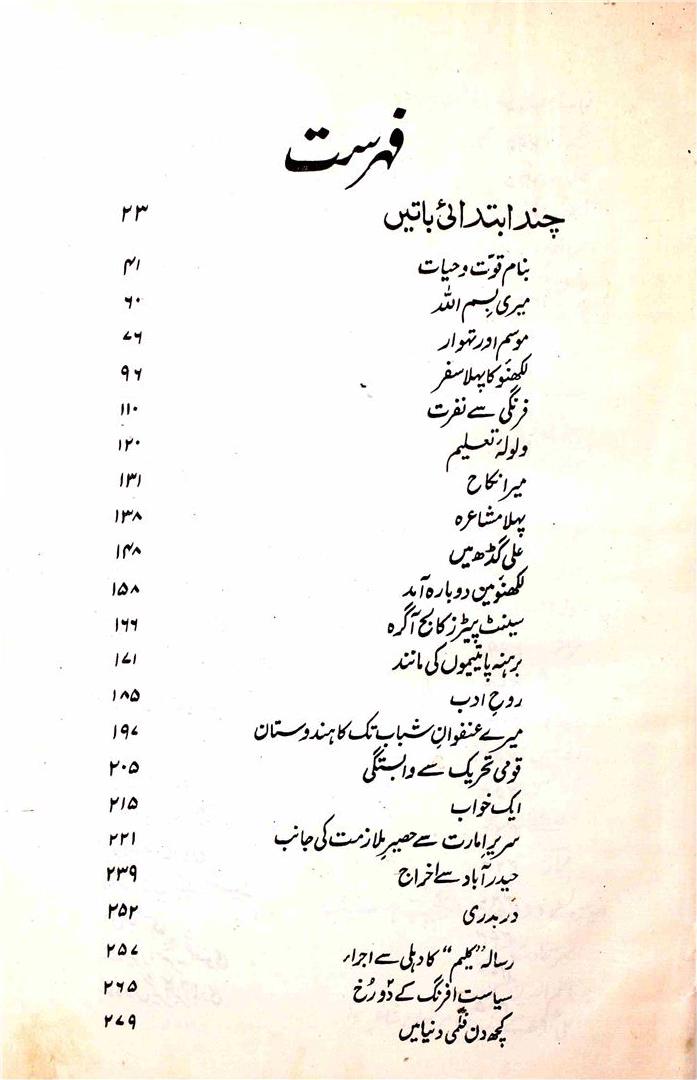 فہرست
چند ابتدائی باتیں ۲۳
بنام قوّت و حیات ۴۱
میری بسم اللہ ۶۰
موسم اور تہوار ۷۶
لکھنؤ کا پہلا سفر ۹۶
فرنگی سے نفرت ۱۱۰
ولولۂ تعلیم ۱۲۰
میرا نکاح ۱۳۱
پہلا مشاعرہ ۱۳۸
علی گڈھ میں ۱۴۸
لکھنؤ میں دوبارہ آمد ۱۵۸
سینٹ پیٹرز کالج آگرہ ۱۶۶
برہنہ پا یتیموں کی مانند ۱۷۱
روحِ ادب ۱۸۵
میرے عنفوانِ شباب تک کا ہندوستان ۱۹۷
قومی تحریک سے وابستگی ۲۰۵
ایک خواب ۲۱۵
سریرِ امارت سے حصیرِ ملازمت کی جانب ۲۲۱
حیدر آباد سے اخراج ۲۳۹
در بدری ۲۵۲
رسالہ "کلیم" کا دہلی سے اجراء ۲۵۷
سیاستِ افرنگ کے دو رُخ ۲۶۵
کچھ دن فلمی دنیا میں ۲۷۹